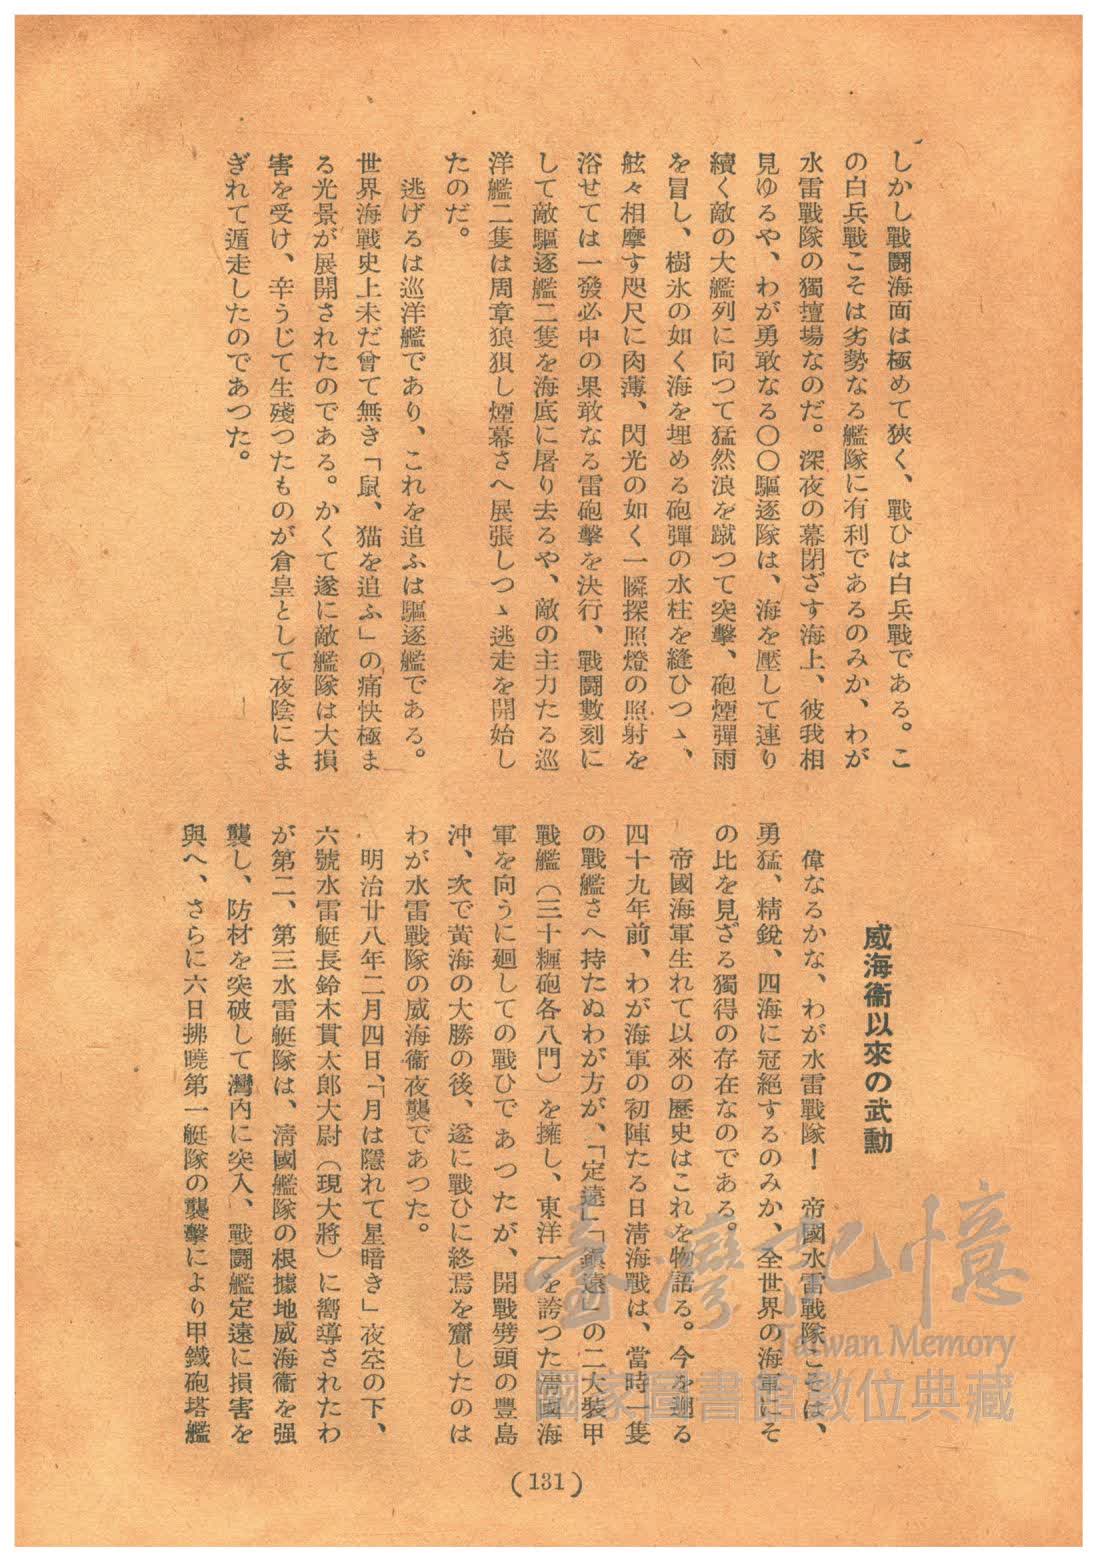 しかし戰鬪海面は極めて狹く、戰ひは白兵戰である。こ
の白兵戰こそは劣勢なる艦隊に有利であるのみか、わが
水雷戰隊の獨壇場なのだ。深夜の幕閉ざす海上、彼我相
見ゆるや、わが勇敢なる〇〇驅逐隊は、海を壓して連り
續く敵の大艦列に向つて猛然浪を蹴つて突擊、砲煙彈雨
を冒し、樹氷の如く海を埋める砲彈の水柱を縫ひつゝ、
舷々相摩す咫尺に肉薄、閃光の如く一瞬探照燈の照射を
浴せては一發必中の果敢なる雷砲擊を決行、戰鬪數刻に
して敵驅逐艦二隻を海底に屠り去るや、敵の主力たる巡
洋艦二隻は周章狼狽し煙幕さへ展張しつゝ逃走を開始し
たのだ。
逃げるは巡洋艦であり、これを追ふは驅逐艦である。
世界海戰史上未だ曾て無き「鼠、猫を追ふ」の痛快極ま
る光景が展開されたのである。かくて遂に敵艦隊は大損
害を受け、辛うじて生殘つたものが倉皇として夜陰にま
ぎれて遁走したのであつた。
威海衞以來の武勳
偉なるかな、わが水雷戰隊！　帝國水雷戰隊こそは、
勇猛、精銳、四海に冠絕するのみか、全世界の海軍にそ
の比を見ざる獨得の存在なのである。
帝國海軍生れて以來の歷史はこれを物語る。今を遡る
四十九年前、わが海軍の初陣たる日淸海戰は、當時一隻
の戰艦さへ持たぬわが方が、「定遠」「鎭遠」の二大裝甲
戰艦（三十糎砲各八門）を擁し、東洋一を誇つた淸國海
軍を向うに廻しての戰ひであつたが、開戰劈頭の豐島
沖、次で黃海の大勝の後、遂に戰ひに終焉を齎したのは
わが水雷戰隊の威海衞夜襲であつた。
明治廿八年二月四日、「月は隱れて星暗き」夜空の下、
六號水雷艇長鈴木貫太郎大尉（現大將）に嚮導されたわ
が第二、第三水雷艇隊は、淸國艦隊の根據地威海衞を强
襲し、防材を突破して灣內に突入、戰鬪艦定遠に損害を
與へ、さらに六日拂曉第一艇隊の襲擊により甲鐵砲塔艦
（131）
臺灣記憶
Taiwan Memory
國家圖書館數位典藏